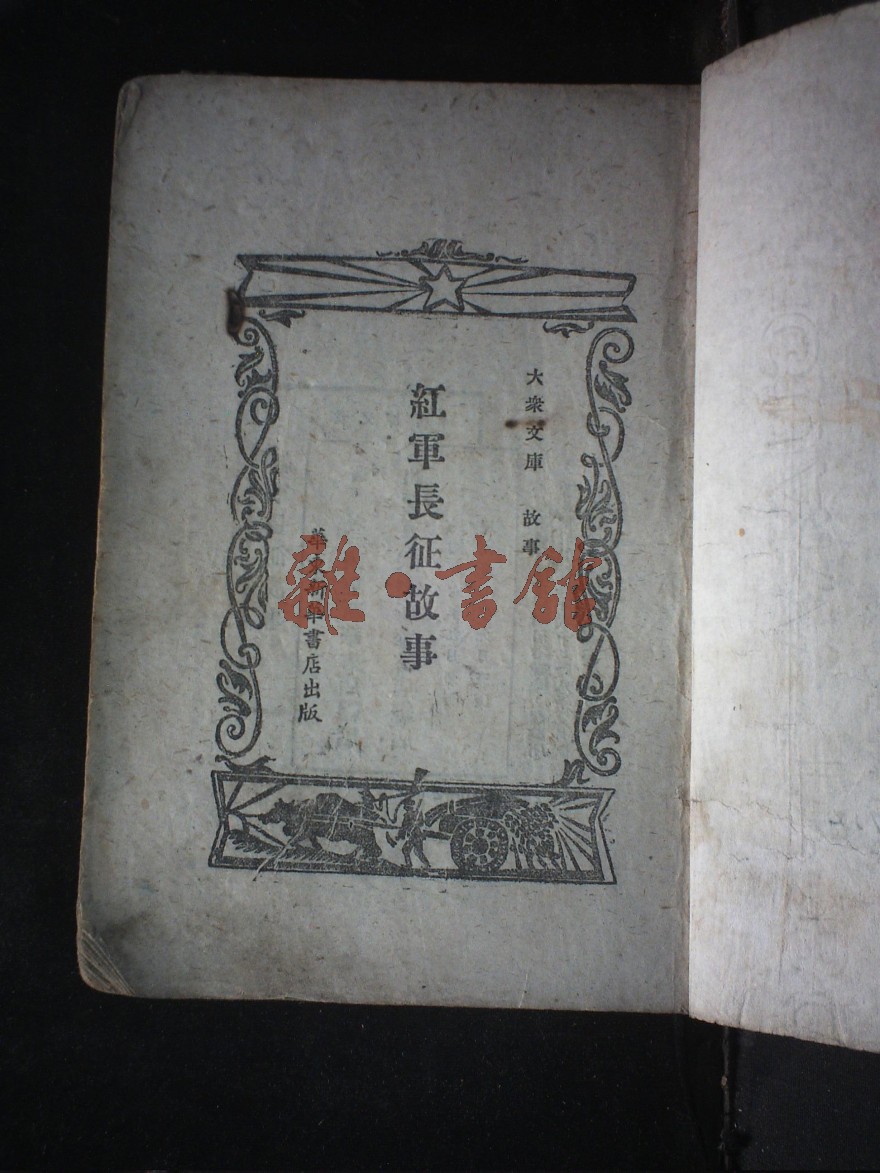 大衆文庫 故事
紅軍長征故事
華東新華書店出版
雜·書館